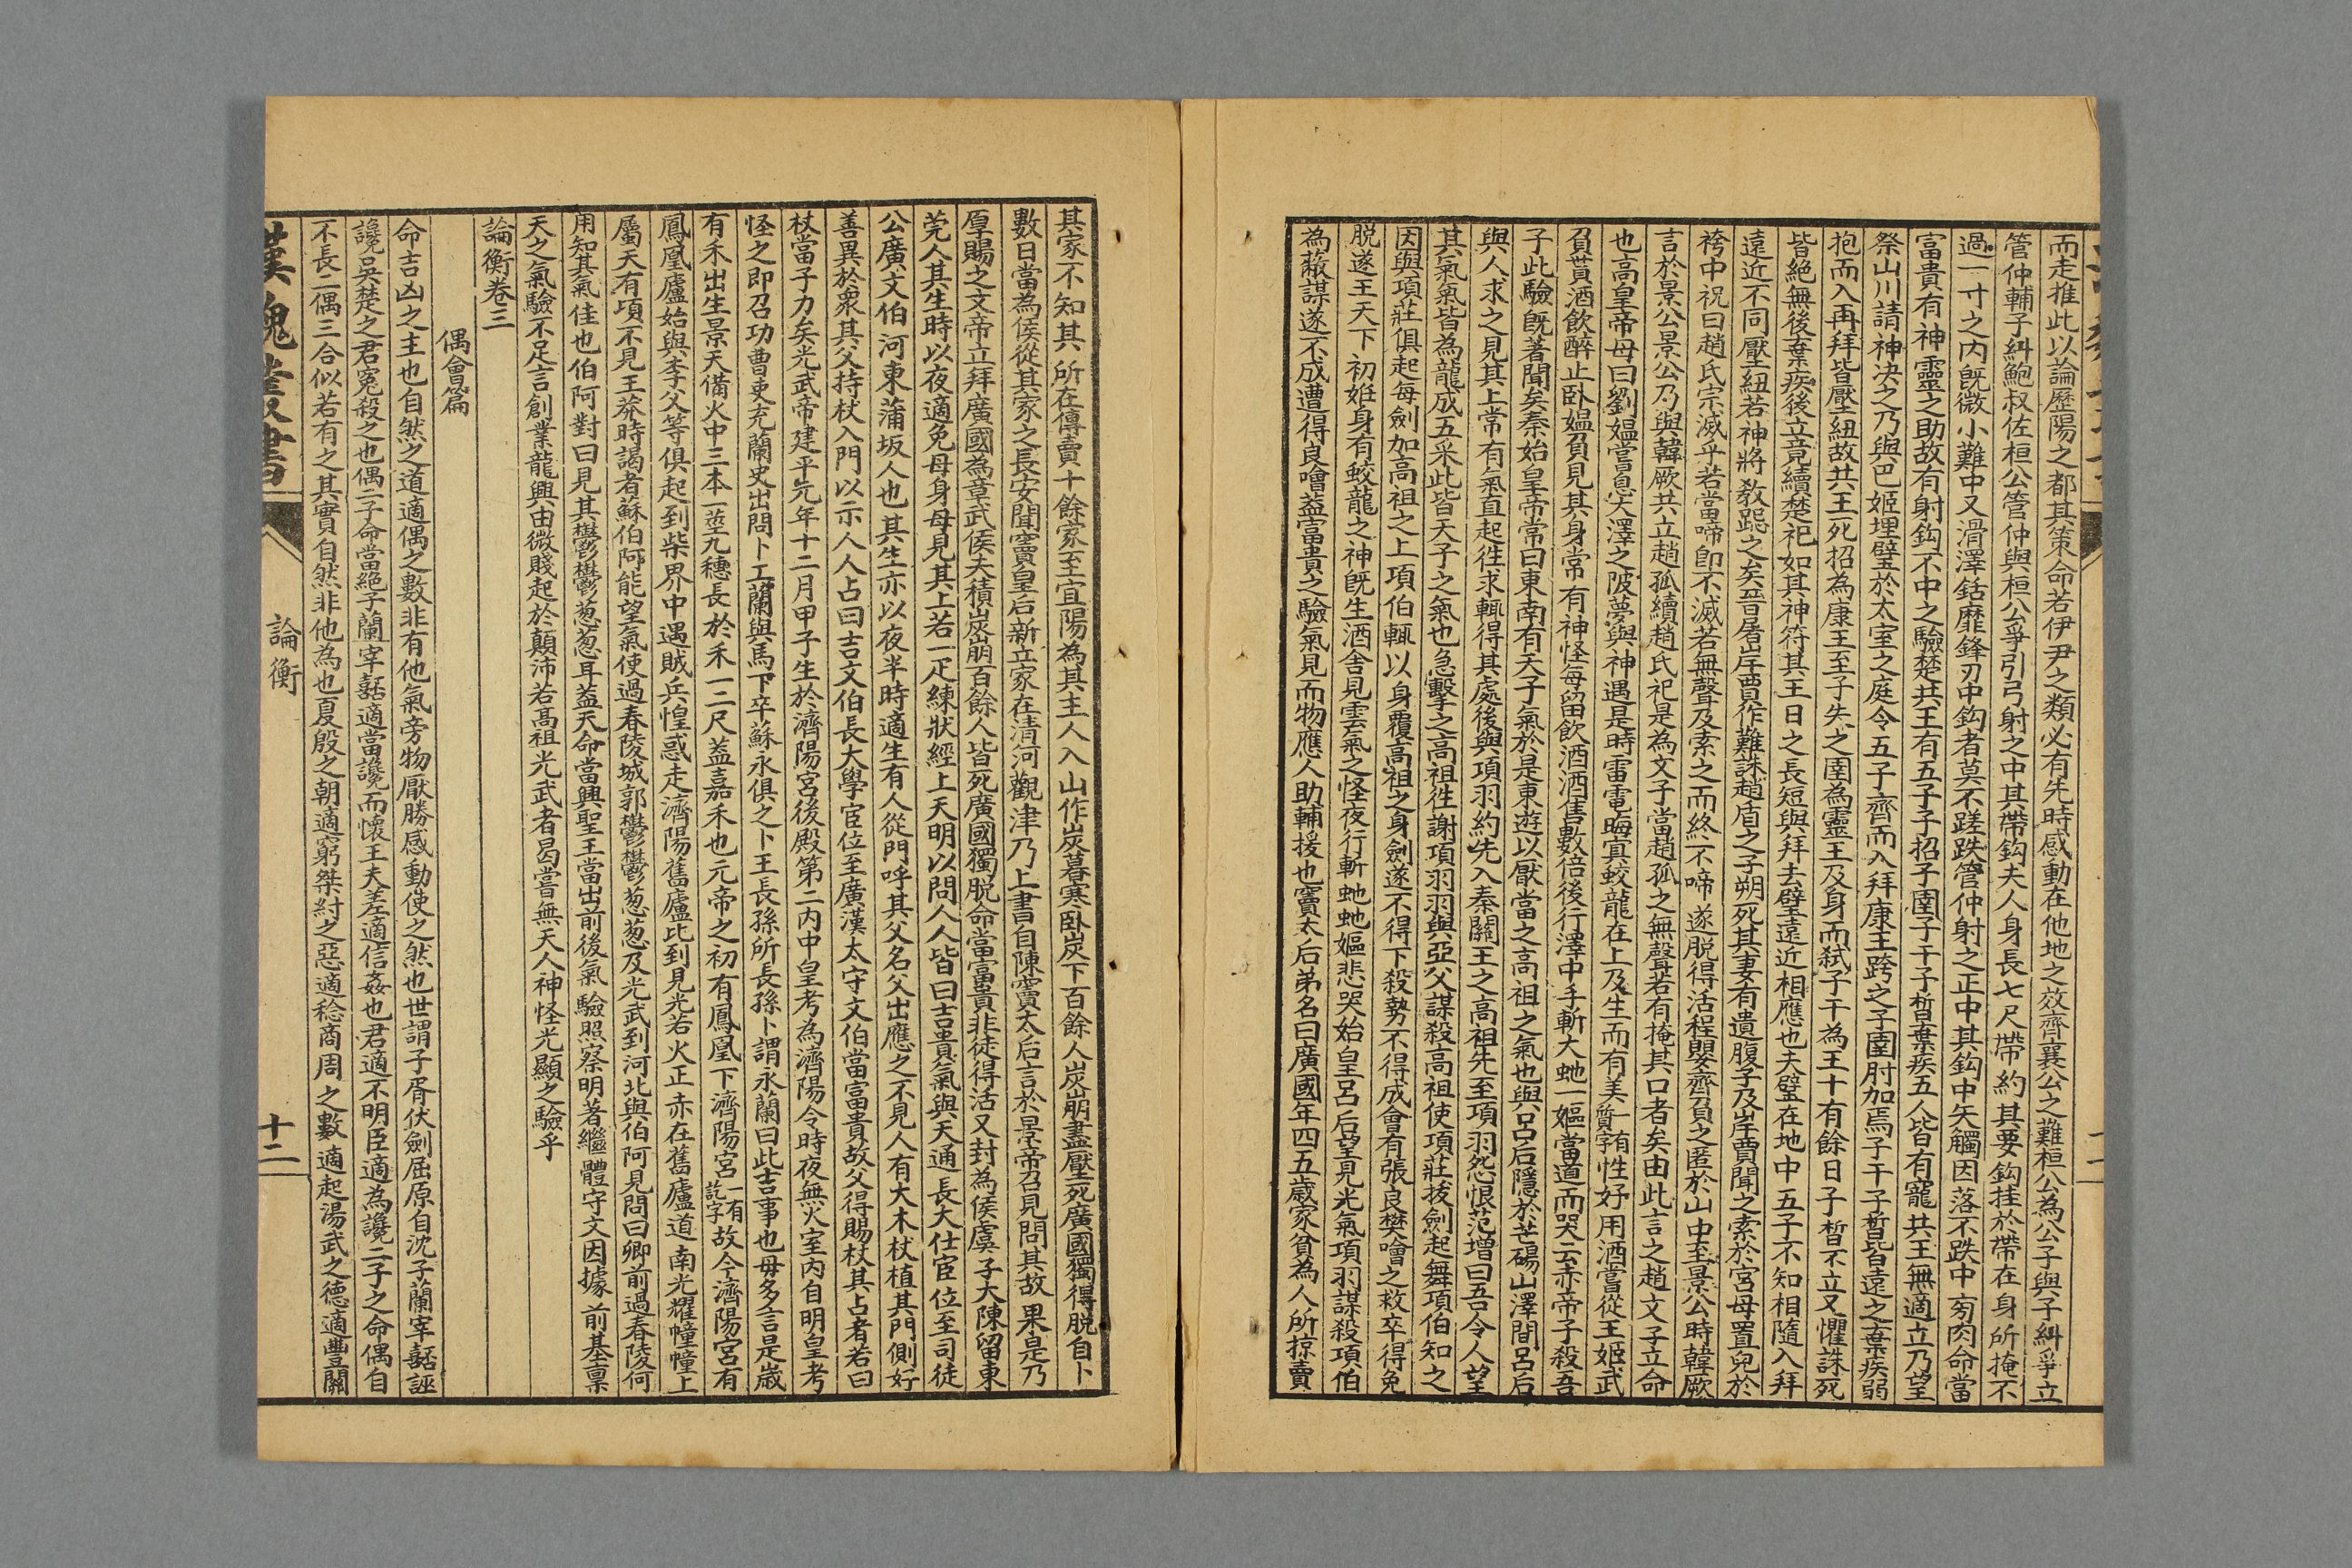 而走推此以論歷陽之都其策命若伊尹之類必有先時感動在他地之效齊襄公之難桓公為公子與子糾爭立
管仲輔子糾鮑叔佐桓公管仲與桓公爭引弓射之中其帶鈎夫人身長七尺帶約其要鈎挂於帶在身所掩不
過一寸之內旣微小難中又滑澤銛靡鋒刃中鈎者莫不蹉跌管仲射之正中其鈎中矢觸因落不跌中旁肉命當
富貴有神靈之助故有射鈎不中之驗楚共王有五子子招子圉子干子晳棄疾五人皆有寵共王無適立乃望
祭山川請神決之乃與巴姬埋璧於太室之庭令五子齊而入拜康王跨之子圉肘加焉子干子晳皆遠之棄疾弱
抱而入再拜皆壓紐故共王死招為康王至子失之圉為靈王及身而弒子干為王十有餘日子晳不立又懼誅死
皆絕無後棄疾後立竟續楚祀如其神符其王日之長短與拜去璧遠近相應也夫璧在地中五子不知相隨入拜
遠近不同壓紐若神將敎跽之矣晉屠岸賈作難誅趙盾之子朔死其妻有遺腹子及岸賈聞之索於宮母置兒於
袴中祝曰趙氏宗滅乎若當啼卽不滅若無聲及索之而終不啼遂脫得活程嬰齊負之匿於山中至景公時韓厥
言於景公景公乃與韓厥共立趙孤續趙氏祀是為文子當趙孤之無聲若有掩其口者矣由此言之趙文子立命
也高皇帝母曰劉媼嘗息大澤之陂夢與神遇是時雷電晦冥蛟龍在上及生而有美質一有字性好用酒嘗從王媼武
負貰酒飲醉止卧媼負見其身常有神怪每留飲酒酒售數倍後行澤中手斬大虵一嫗當道而哭云赤帝子殺吾
子此驗旣著聞矣秦始皇帝常曰東南有天子氣於是東遊以厭當之高祖之氣也與呂后隱於芒碭山澤間呂后
與人求之見其上常有氣直起往求輒得其處後與項羽約先入秦關王之高祖先至項羽怨恨范增曰吾令人望
其氣氣皆為龍成五采此皆天子之氣也急擊之高祖往謝項羽羽與亞父謀殺高祖使項莊拔劍起舞項伯知之
因與項莊俱起每劍加高祖之上項伯輒以身覆高祖之身劍遂不得下殺勢不得成會有張良樊噲之救卒得免
脫遂王天下初姙身有蛟龍之神旣生酒舍見雲氣之怪夜行斬虵虵嫗悲哭始皇呂后望見光氣項羽謀殺項伯
為蔽謀遂不成遭得良噲蓋富貴之驗氣見而物應人助輔援也竇太后弟名曰廣國年四五歲家貧為人所掠賣
其家不知其所在傳賣十餘家至宜陽為其主人入山作炭暮寒卧炭下百餘人炭崩盡壓死廣國獨得脫自卜
數日當為侯從其家之長安聞竇皇后新立家在清河觀津乃上書自陳竇太后言於景帝召見問其故果是乃
厚賜之文帝立拜廣國為章武侯夫積炭崩百餘人皆死廣國獨脫命當富貴非徒得活又封為侯虞子大陳留東
莞人其生時以夜適免母身母見其上若一疋練狀經上天明以問人人皆曰吉貴氣與天通長大仕宦位至司徒
公廣文伯河東蒲坂人也其生亦以夜半時適生有人從門呼其父名父出應之不見人有大木杖植其門側好
善異於衆其父持杖入門以示人人占曰吉文伯長大學宦位至廣漢太守文伯當富貴故父得賜杖其占者若曰
杖當子力矣光武帝建平元年十二月甲子生於濟陽宮後殿第二內中皇考為濟陽令時夜無火室內自明皇考
怪之即召功曹吏充蘭史出問卜工蘭與馬下卒蘇永俱之卜王長孫所長孫卜謂永蘭曰此吉事也毋多言是歲
有禾出生景天備火中三本一莖九穗長於禾一二尺蓋嘉禾也元帝之初有鳳凰下濟陽宮一有訖字故今濟陽宮有
鳳凰廬始與李父等俱起到柴界中遇賊兵惶惑走濟陽舊廬比到見光若火正赤在舊廬道南光耀憧憧上
屬天有頃不見王莽時謁者蘇伯阿能望氣使過春陵城郭鬱鬱葱葱及光武到河北與伯阿見問曰卿前過春陵何
用知其氣佳也伯阿對曰見其鬱鬱葱葱耳蓋天命當興聖王當出前後氣驗照察明著繼體守文因據前基稟
天之氣驗不足言創業龍興由微賤起於顛沛若高祖光武者曷嘗無天人神怪光顯之驗乎
論衡卷三
偶會篇
命吉凶之主也自然之道適偶之數非有他氣旁物厭勝感動使之然也世謂子胥伏劍屈原自沈子蘭宰嚭誣
讒吳楚之君冤殺之也偶二子命當絕子蘭宰嚭適當讒而懷王夫差適信姦也君適不明臣適為讒二子之命偶自
不長二偶三合似若有之其實自然非他為也夏殷之朝適窮桀紂之惡適稔商周之數適起湯武之德適豐關
漢魏叢書
論衡
十二